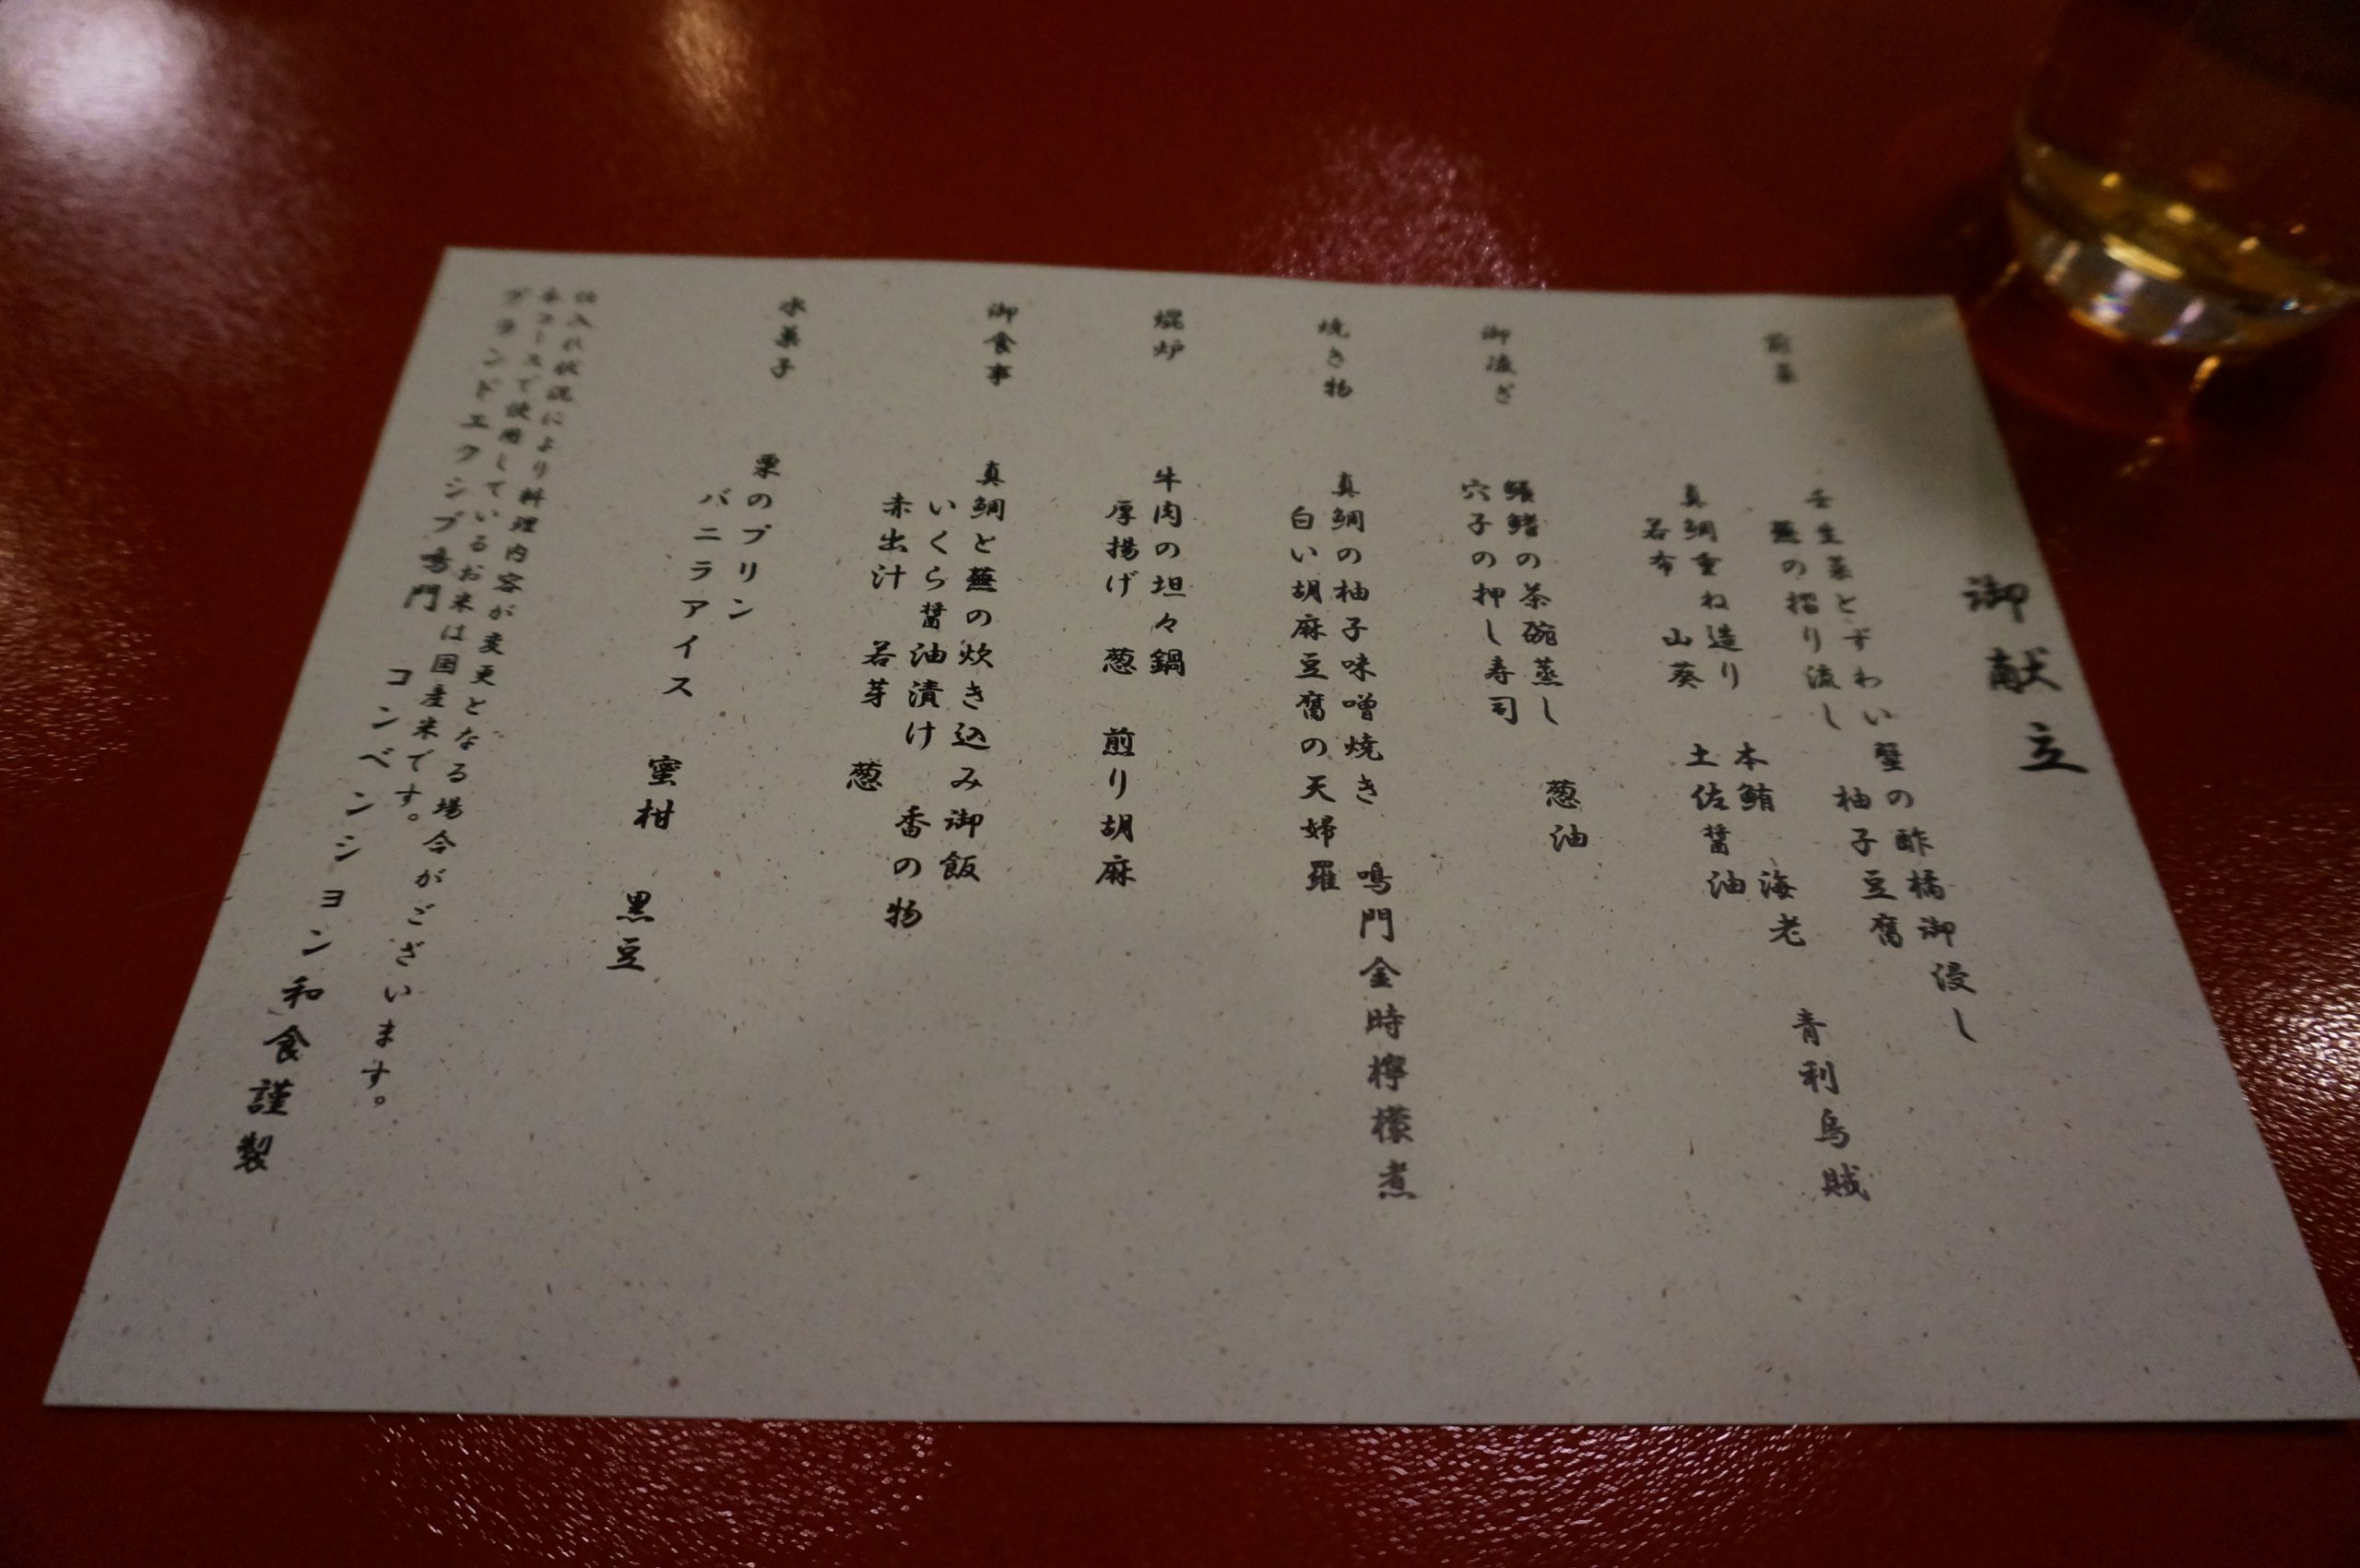 御献立
前菜
壬生菜とずわい蟹の酢橘御浸し
蕪の摺り流し 柚子豆腐
真鯛重ね造り 本鮪 海老 青利烏賊
若布 山葵 土佐醤油
御凌ぎ
鱶鰭の茶碗蒸し 葱油
穴子の押し寿司
焼き物
真鯛の柚子味噌焼き 鳴門金時檸檬煮
白い胡麻豆腐の天婦羅
焜炉
牛肉の坦々鍋
厚揚げ 葱 煎り胡麻
御食事
真鯛と蕪の炊き込み御飯
いくら醤油漬け 香の物
赤出汁 若芽 葱
水菓子
栗のプリン
バニラアイス 蜜柑 黒豆
仕入れ状況により料理内容が変更となる場合がございます。
本コースで使用しているお米は国産米です。
グランドエクシブ鳴門 コンベンション和食謹製